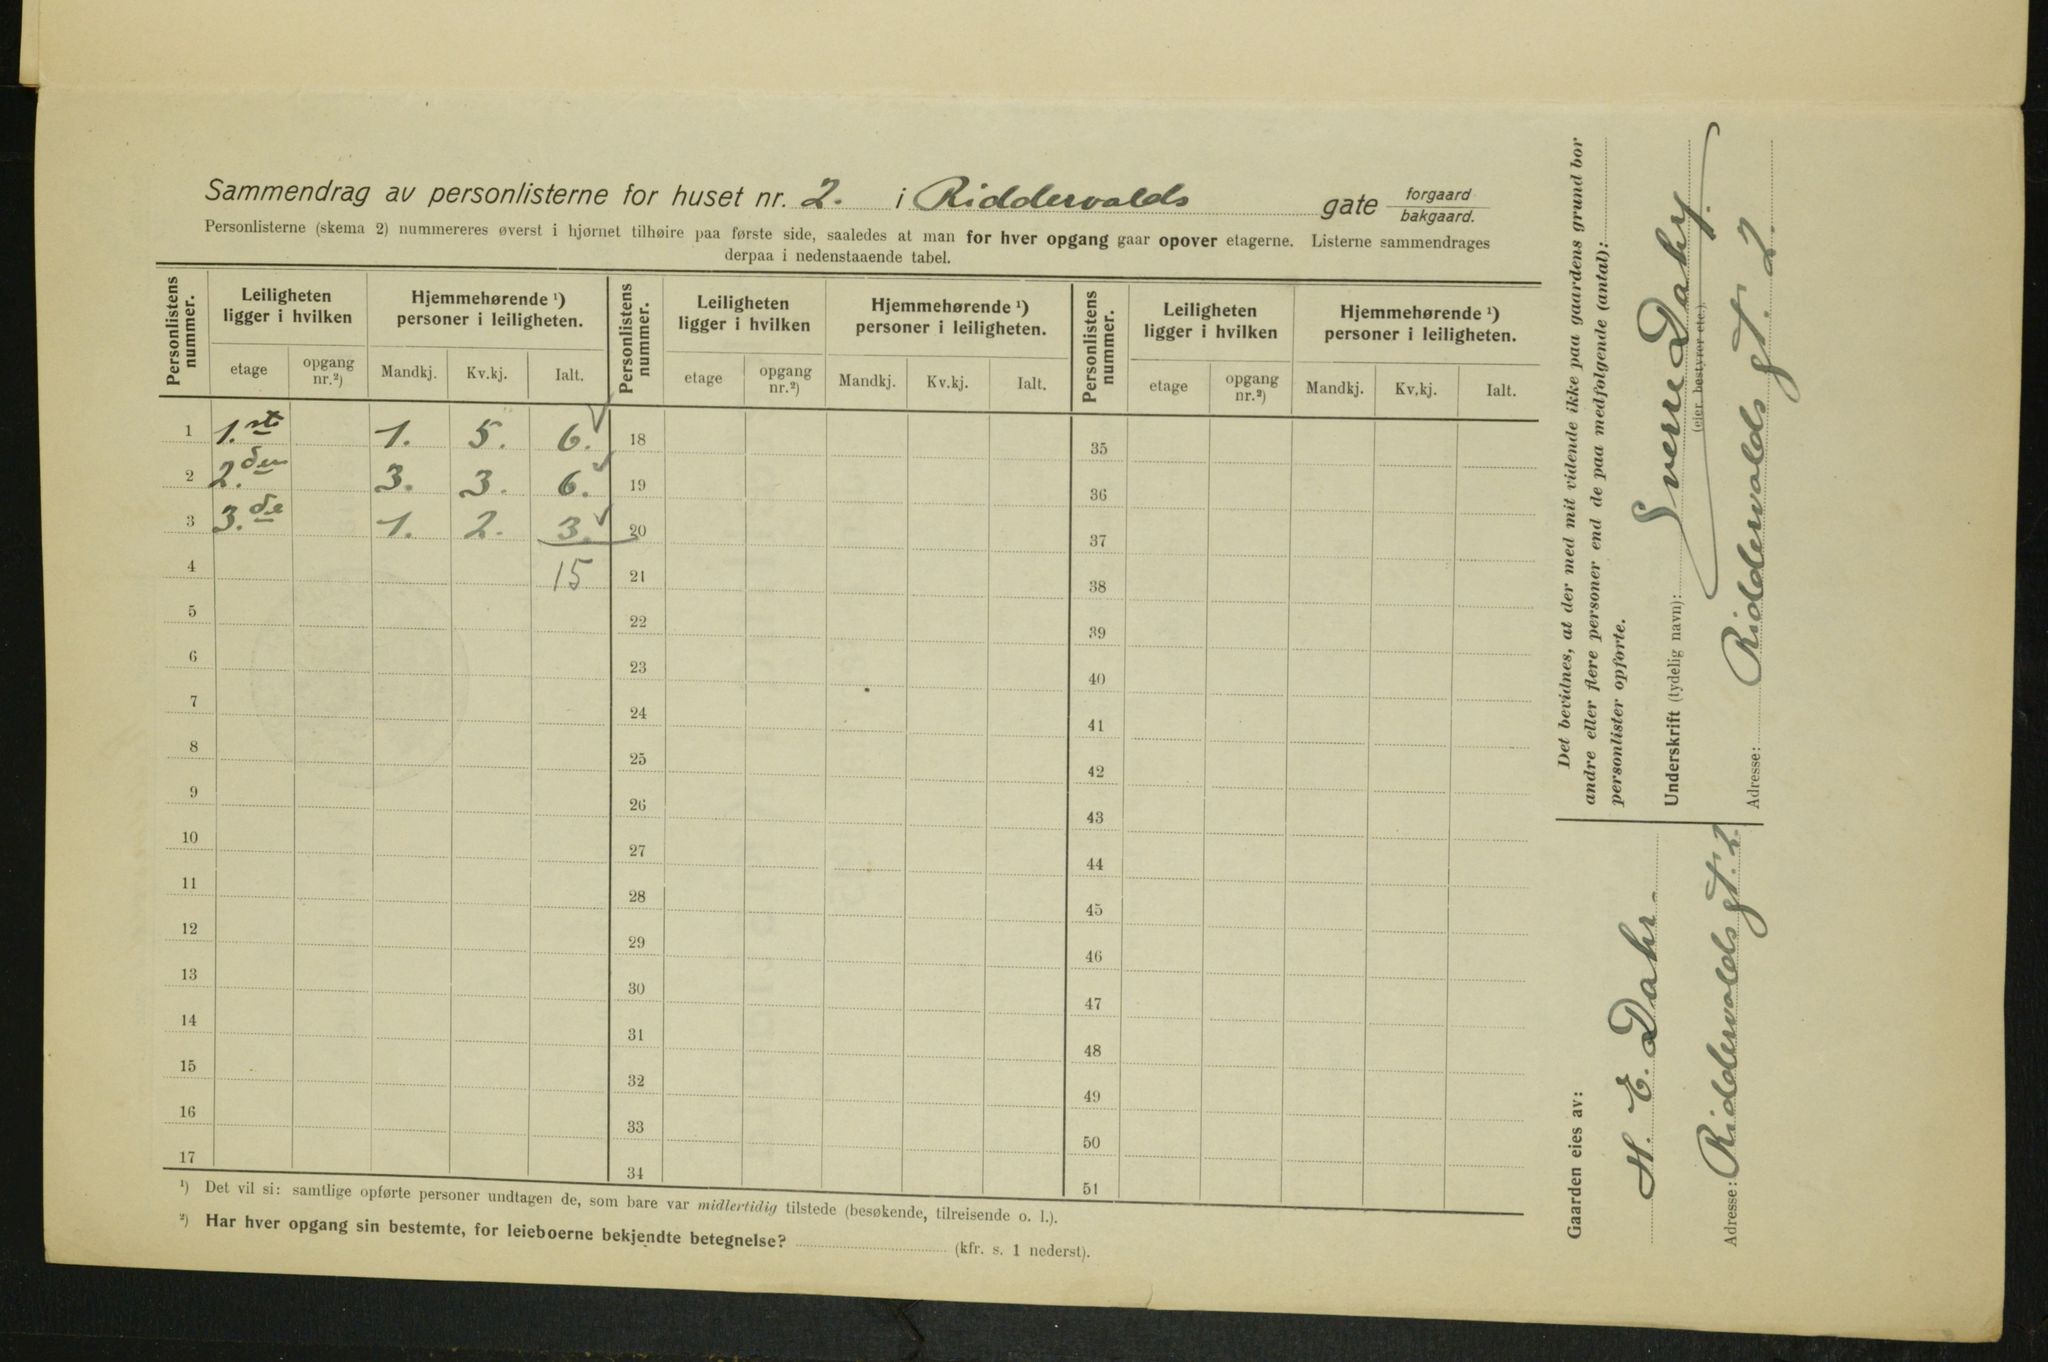 Sammendrag av personlisterne for huset nr. 2. i Riddervolds gate forgaard
bakgaard.
Personlisterne (skema 2) nummereres øverst i hjørnet tilhøire paa første side, saaledes at man for hver opgang gaar opover etagerne. Listerne sammendrages
derpaa i nedenstaaende tabel.
Personlistens nummer. Leiligheten ligger i hvilken Hjemmehørende ¹) personer i leiligheten. Personlistens nummer. Leiligheten ligger i hvilken Hjemmehørende ¹) personer i leiligheten. Personlistens nummer. Leiligheten ligger i hvilken Hjemmehørende ¹) personer i leiligheten.
etage opgang nr.²) Mandkj. Kv.kj. Ialt. etage opgang nr.²) Mandkj. Kv.kj. Ialt. etage opgang nr.²) Mandkj. Kv.kj. Ialt.
1 1.ste 1. 5. 6. 18 35
2 2.den 3. 3. 6. 19 36
3 3.de 1. 2. 3. 20 37
4 15 21 38
5 22 39
6 23 40
7 24 41
8 25 42
9 26 43
10 27 44
11 28 45
12 29 46
13 30 47
14 31 48
15 32 49
16 33 50
17 34 51
¹) Det vil si: samtlige opførte personer undtagen de, som bare var midlertidig tilstede (besøkende, tilreisende o. l.).
²) Har hver opgang sin bestemte, for leieboerne bekjendte betegnelse? (kfr. s. 1 nederst).
Det bevidnes, at der med mit vidende ikke paa gaardens grund bor
andre eller flere personer end de paa medfølgende (antal):
personlister opførte.
Underskrift (tydelig navn): Sverre Dahr.
(eier, bestyrer etc.)
Adresse: Riddervolds gt. 2.
Gaarden eies av:
H. E. Dahr.
Adresse: Riddervolds gt. 2.